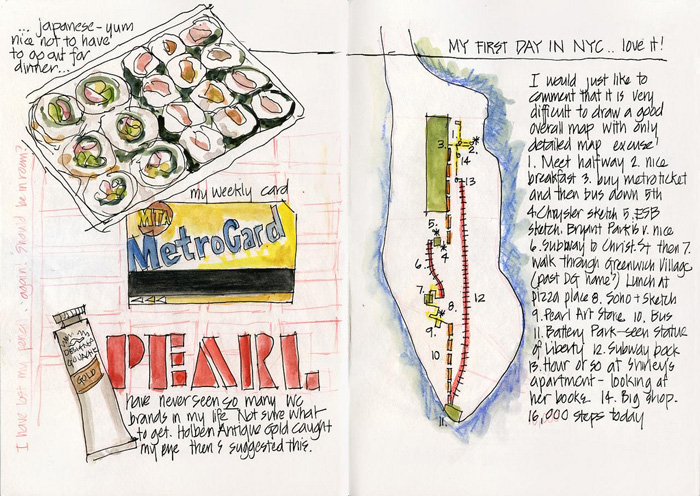 ... japanese-yum
nice not to have
to go out for
dinner...
my weekly card
MTA
MetroCard
GOUACHE
GOLD
PEARL.
have never seen so many WC
brands in my life. Not sure what
to get. Holben Antique Gold caught
my eye then S suggested this.
I have lost my pencil. again. should be in room?
MY FIRST DAY IN NYC.. love it!
1.
2.
3.
14
13
5.
4
6.
7.
8.
9.
10
12
11.
I would just like to
comment that it is very
difficult to draw a good
overall map with only
detailed map excuse!
1. Meet halfway 2. nice
breakfast 3. buy metroticket
and then bus down 5th
4 Chrysler sketch 5. ESB
sketch. Bryant Park is v. nice
6. Subway to Christ. St then 7.
walk through Greenwich Village
(past DG home?) Lunch at
pizza place 8. Soho + sketch
9. Pearl Art Store 10. Bus
11. Battery Park-seen statue
of Liberty 12. Subway back
13. Hour or so at Shirley's
apartment - looking at
her books. 14. Big shop.
16,000 steps today